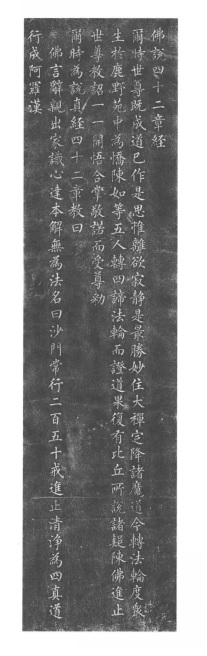 佛說四十二章經
尔時世尊旣成道已作是思惟離欲寂靜是最勝妙住大禪定降諸魔道今轉法輪度衆
生於鹿野苑中為憍陳如等五人轉四諦法輪而證道果復有比丘所說諸疑陳佛進止
世尊教詔一一開悟合掌敬諾而受尊勑
爾時為說真經四十二章教曰
佛言辭親出家識心達本解無為法名曰沙門常行二百五十戒進止清淨為四真道
行成阿羅漢